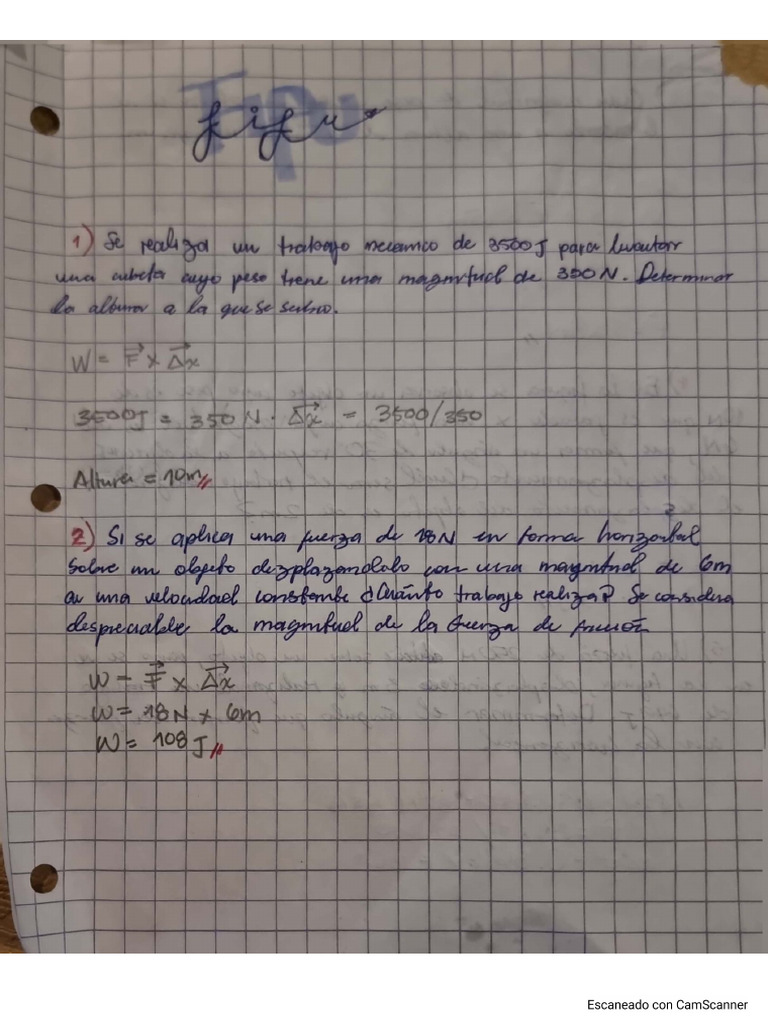 1) Se realiza un trabajo mecanico de 3500J para levantar
una cubeta cuyo peso tiene una magnitud de 350N. Determinar
la altura a la que se subio.
W = F x Δx
3500J = 350N · Δx = 3500/350
Altura = 10m//
2) Si se aplica una fuerza de 18N en forma horizontal
sobre un objeto dezplazandolo con una magnitud de 6m
a una velocidad constante ¿Cuánto trabajo realiza? Se considera
despreciable la magnitud de la fuerza de
W = F x Δx
W = 18N x 6m
W = 108J//
Escaneado con CamScanner